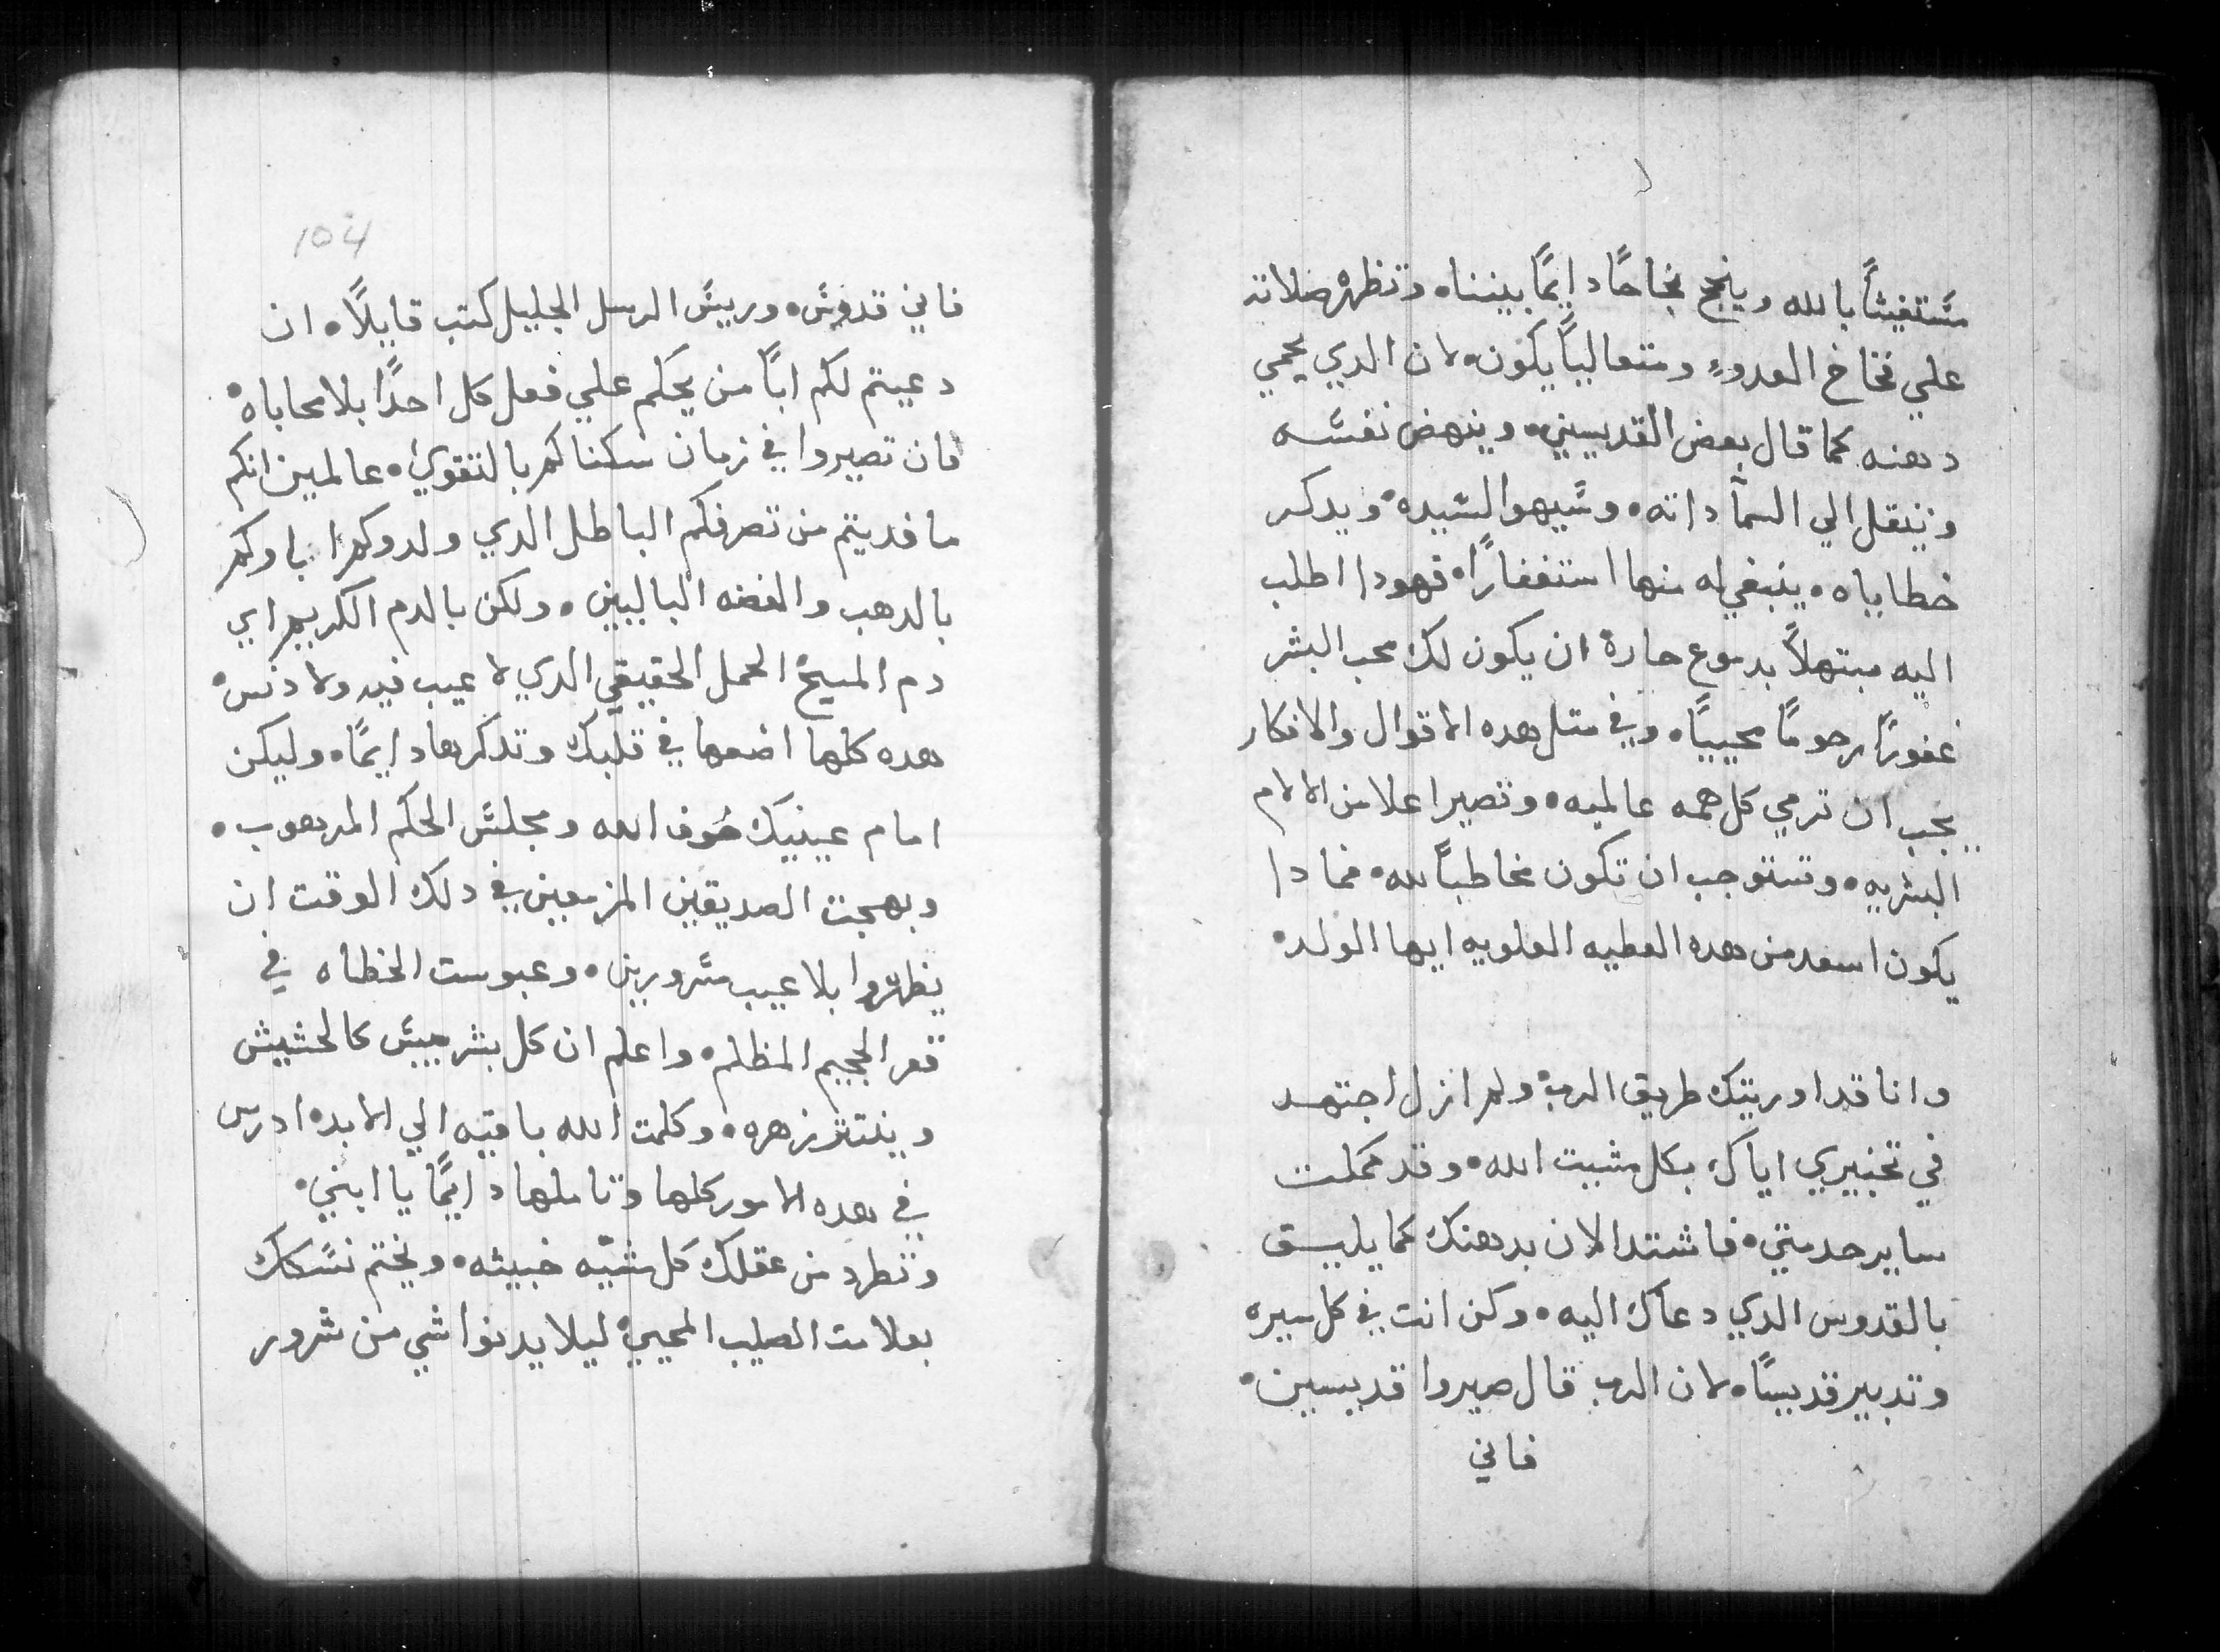 مستغيثاً بالله وينجح نجاحاً دايماً بيننا، وتظهر ضلاته
علي فخاخ العدو، ومتعالياً يكون، لان الدي يحمي
دهنه كما قال بعض القديسين، وينهض نفسه
وينقل الي السما داته، وسيهوا لسيده، ويدكر
خطاياه، ينبغي له منها استغفاراً، فهودا اطلب
اليه مبتهلاً بدموع حارة ان يكون لك محب البشر
غفوراً رحوماً محيياً، وفي متل هده الاقوال والافكار
يجب ان ترمي كل همه عالميه، وتصير اعلا من الالام
البشريه، وتستوجب ان تكون مخاطباً لله، فمادا
يكون اسعد من هده العطيه العلويه ايها الولد،
وانا قد اوريتك طريق الرب، ولم ازل اجتهد
في تخبيري اياك بكل مشيت الله، وقد كملت
ساير خدمتي، فاشتد الان بدهنك كما يليق
بالقدوس الدي دعاك اليه، وكن انت في كل سيره
وتدبير قديساً، لان الرب قال صيروا قديسين،
فاني
104
فاني قدوس، وريس الرسل الجليل كتب قايلاً، ان
دعيتم لكم اباً من يحكم علي فعل كل احداً بلا محاباه،
فان تصيروا في زمان سكناكم بالتقوي، عالمين انكم
ما فديتم من تصرفكم الباطل الدي ولدوكم اباوكم
بالدهب والفضه الباليين، ولكن بالدم الكريم اي
دم المسيح الحمل الحقيقي الدي لا عيب فيه ولا دنس،
هده كلها اضعها في قلبك وتدكرها دايماً، وليكن
امام عينيك خوف الله ومجلس الحكم المرهوب،
وبهجت الصديقين المزمعين في دلك الوقت ان
يظهروا بلا عيب مسرورين، وعبوست الخطاه في
قعر الجحيم المظلم، واعلم ان كل بشر ييبس كالحشيش
وينتثر زهره، وكلمت الله باقيه الي الابد، ادرس
في هده الامور كلها وتاملها دايماً يا ابني،
وتطرد من عقلك كل شيه خبيثه، ونختم نسكك
بعلامت الصليب المحيي، ليلا يدنوا شي من شرور